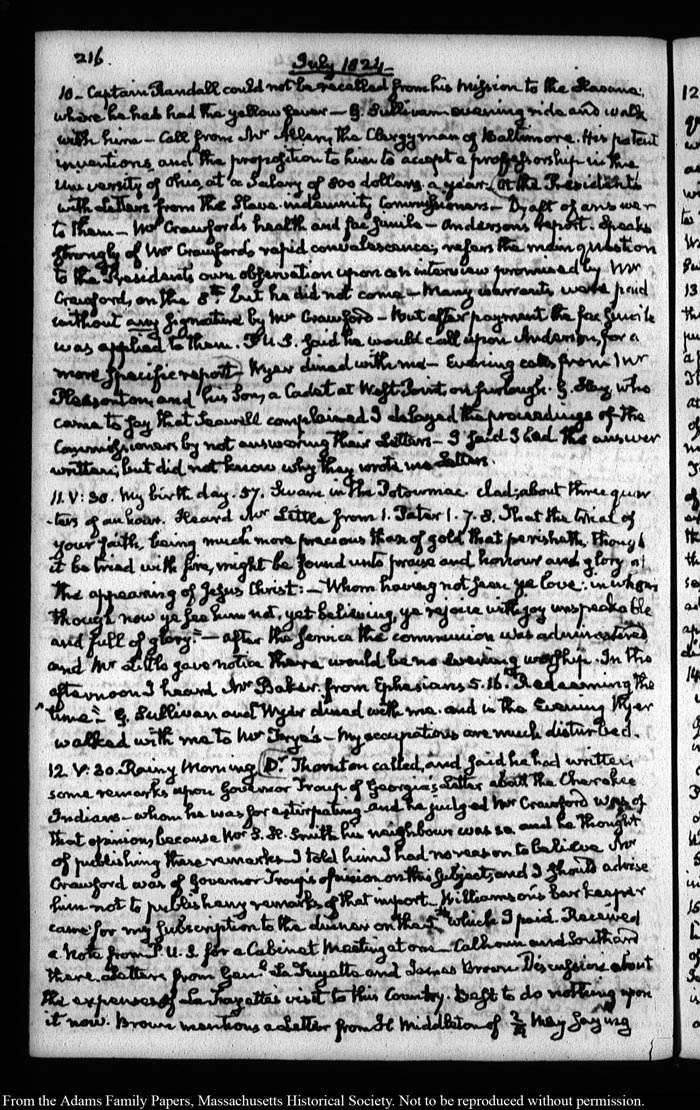 216
July 1824
10 - Captain Randall could not be recalled from his Mission to the Havana;
where he has had the yellow fever - G. Sullivan evening ride and walk
with him - Call from Mr Allen, the Clergyman of Baltimore. His patent
inventions, and the proposition to him to accept a professorship in the
University of Ohio, at a Salary of 800 dollars a year. At the Presidents
with Letters from the Slave indemnity Commissioners - Draft of answer
to them - Mr Crawford's health and fac simile - Anderson's report. Speaks
strongly of Mr Crawford's rapid convalescence; refers the main question
to the Presidents own observation upon an interview promised by Mr
Crawford, on the 8th. but he did not come - Many warrants were paid
without any signature by Mr Crawford - But after payment the fac simile
was applied to them. P.U.S. said he would call upon Anderson, for a
more specific report - Wyer dined with me - Evening calls from Mr
Pleasonton, and his Son, a Cadet at West Point, on furlough. G. Hay, who
came to say that Seawell complained I delayed the proceedings of the
Commissioners by not answering their Letters - I said I had the answer
written; but did not know why they wrote me Letters.
11. V: 30. My birth day. 57. Swam in the Potowmac clad; about three quar
-ters of an hour. Heard Mr Little from 1. Peter 1. 7. 8. That the trial of
your faith, being much more precious than of gold that perisheth, though
it be tried with fire, might be found unto praise and honour and glory at
the appearing of Jesus Christ: - Whom having not seen ye love: in whom
though now ye see him not, yet believing, ye rejoice with joy unspeakable
and full of glory." - After the service the communion was administered
and Mr Little gave notice there would be no evening worship. In the
afternoon I heard Mr Baker. from Ephesians 5. 16. "Redeeming the
time." G. Sullivan and Wyer dined with me. and in the Evening Wyer
walked with me to Mr Frye's - My occupations are much disturbed.
12. V: 30. Rainy Morning. Dr. Thornton called, and said he had written
some remarks upon Governor Troup of Georgia's Letter about the Cherokee
Indians - whom he was for extirpating - and he judged Mr Crawford was of
that opinion, because Mr S. H. Smith his neighbour was so. and he thought
of publishing these remarks - I told him I had no reason to believe Mr
Crawford was of Governor Troup's opinion on this subject, and I should advise
him not to publish any remarks of that import - Williamson's bar keeper
came for my subscription to the dinner on the 5th which I paid. Received
a Note from P.U.S. for a Cabinet Meeting at one - Calhoun and Southard
there. Letters from Genl. La Fayette and James Brown. Discussion about
the expenses of La Fayette's visit to this Country. Best to do nothing upon
it now. Brown mentions a Letter from H Middleton of May saying
From the Adams Family Papers, Massachusetts Historical Society. Not to be reproduced without permission.